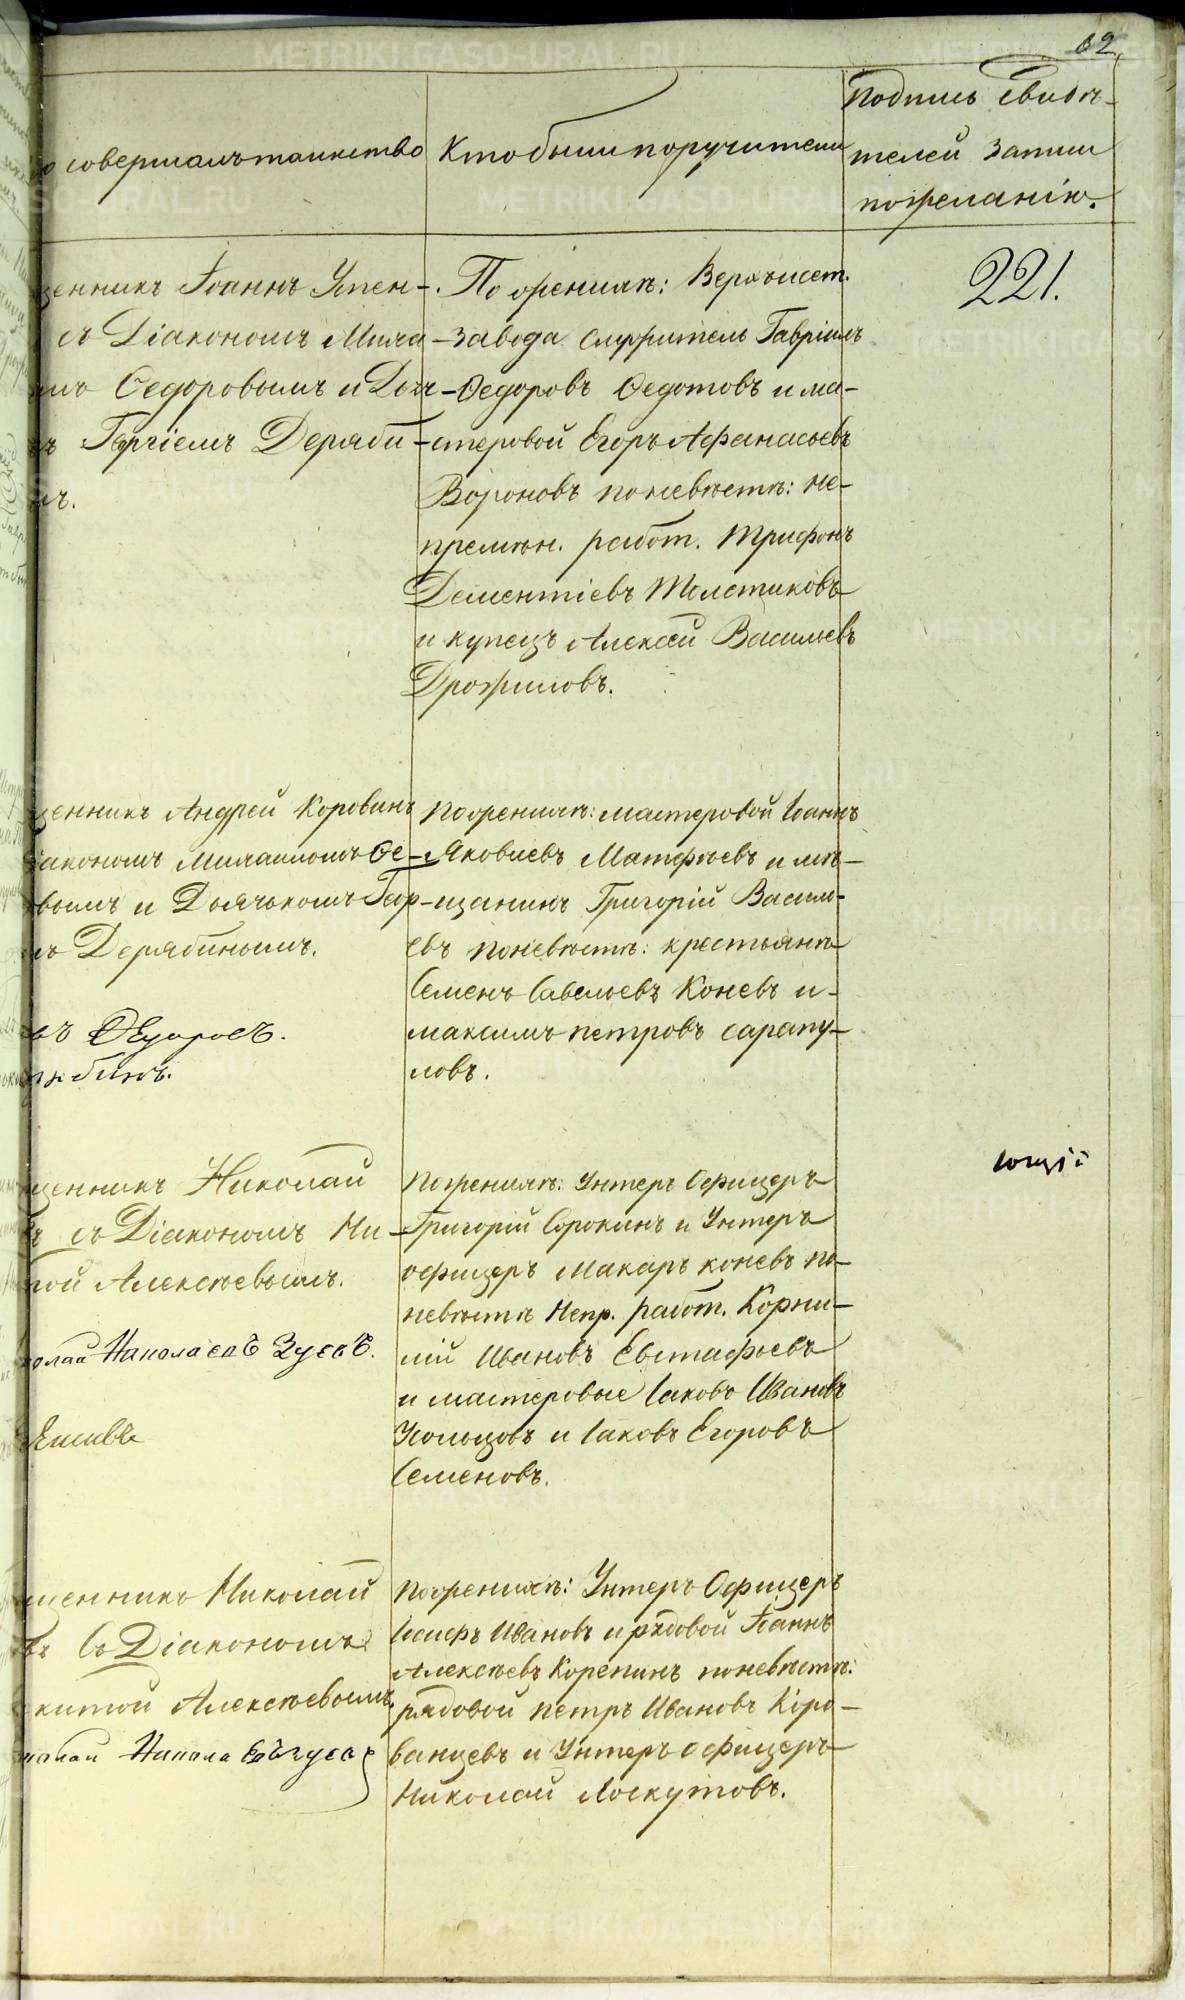 62
о совершалъ таинство
Кто были поручители
Подпись свидѣ-
телей записи
по желанію.
221.
щенникъ Іоаннъ Успен-
съ Діакономъ Миха
мъ Ѳедоровымъ и Дья
Георгіемъ Деряби-
мъ.
По женихѣ: Верхъисет.
завода служитель Гавріилъ
Ѳедоровъ Ѳедотовъ и ма-
стеровой Егоръ Афанасьевъ
Вороновъ по невѣстѣ: Не-
премѣн. работ. Трифонъ
Дементіевъ Толстиковъ
и купецъ Алексѣй Васильевъ
Дрожиловъ.
щенникъ Андрей Коровинъ
іакономъ Михаиломъ Ѳе-
вымъ и Дьячькомъ Геор-
мъ Дерябиномъ.
въ Ѳедоровъ.
бинъ.
По женихѣ: мастеровой Іоаннъ
Яковлевъ Матфѣевъ и мѣ-
щанинъ Григорій Василь-
евъ по невѣстѣ: крестьяне
Семенъ Савельевъ Коневъ и
Максимъ Петровъ Сарапу-
ловъ.
щенникъ Николай
въ съ Діакономъ Ни-
той Алексѣевымъ.
колай Николаевъ Зуевъ.
По женихѣ: Унтеръ Офицеръ
Григорій Сорокинъ и Унтеръ
офицеръ Макаръ Коневъ по
невѣстѣ Непр. работ. Корни-
лій Ивановъ Евстафьевъ
и мастеровые Іаковъ Ивановъ
Усольцовъ и Іаковъ Егоровъ
Семеновъ.
щенникъ Николай
въ Съ Діакономъ
китой Алексѣевымъ
колай Никола
По женихѣ: Унтеръ Офицеръ
Іосифъ Ивановъ и рядовой Іоаннъ
Алексѣевъ Коренинъ по невѣстѣ:
рядовой Петръ Ивановъ Коро-
ванцевъ и Унтеръ офицеръ
Николай Лоскутовъ.
METRIKI.GASO-URAL.RU